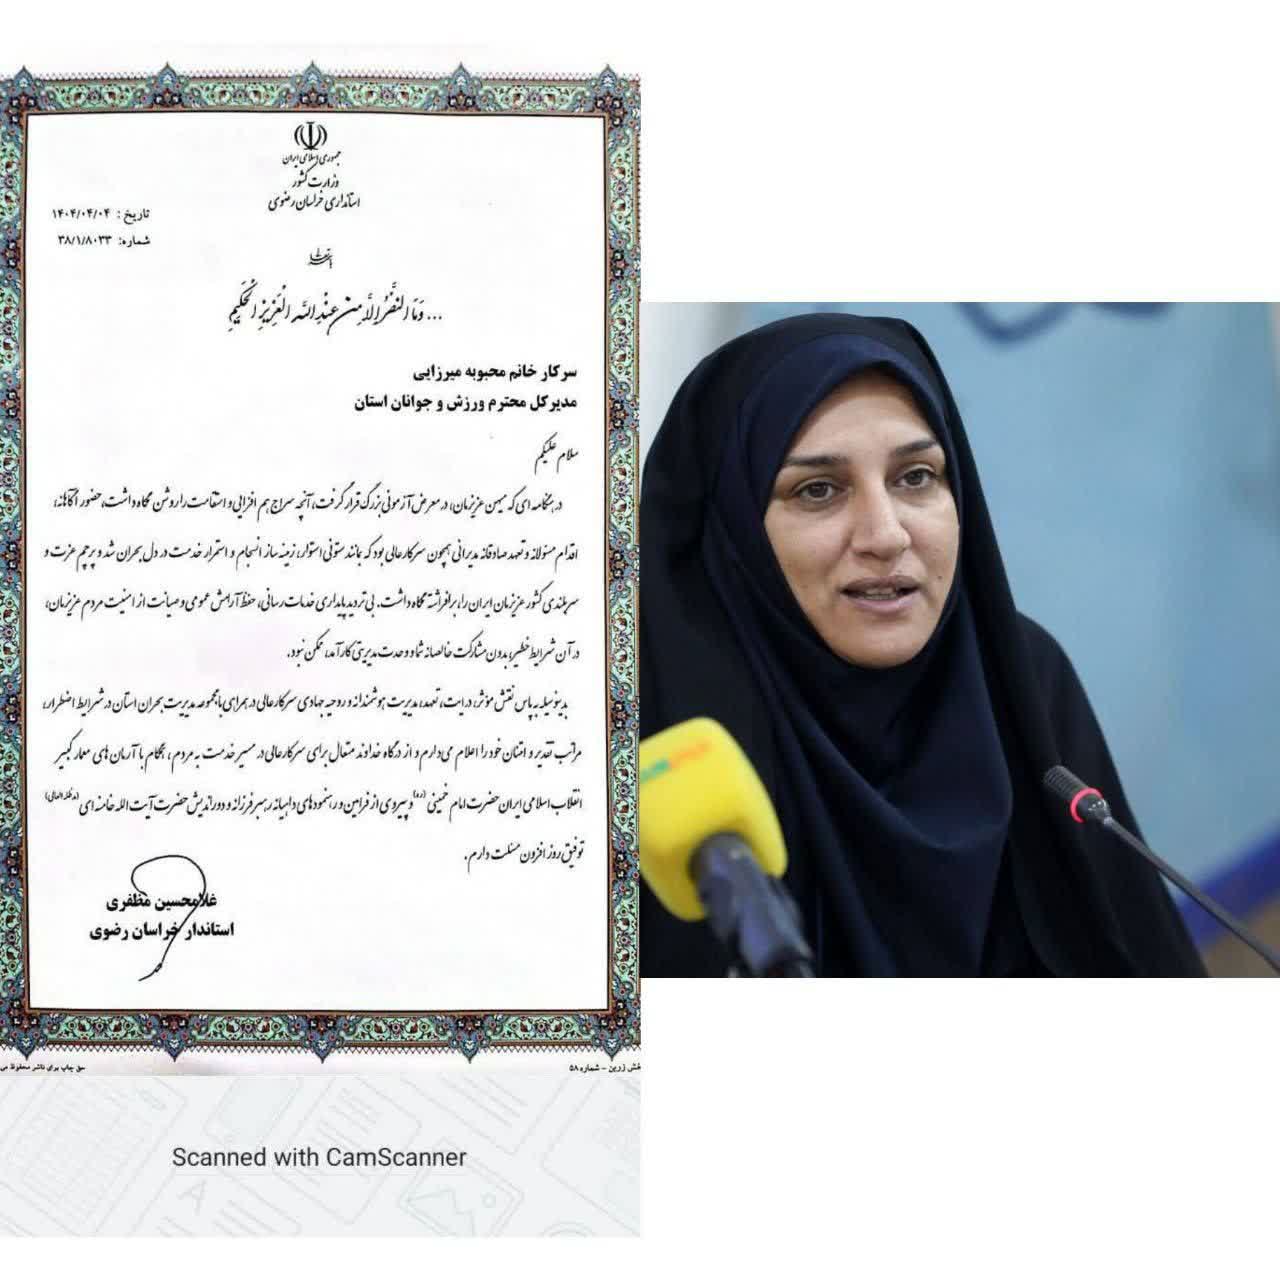 جمهوری اسلامی ایران
وزارت کشور
استانداری خراسان رضوی
تاریخ : ۱۴۰۴/۰۴/۰۴
شماره: ۳۸/۱/۸۰۳۳
... وَمَا النَّصْرُ إِلَّا مِنْ عِنْدِ اللَّهِ الْعَزِيزِ الْحَكِيمِ
سرکار خانم محبوبه میرزایی
مدیرکل محترم ورزش و جوانان استان
سلام علیکم
در هنگامه ای که میهن عزیزمان، در معرض آزمونی بزرگ قرار گرفت، آنچه سراج هم افزایی و استقامت را روشن نگاه داشت، حضور آگاهانه،
اقدام مسئولانه و تعهد صادقانه مدیرانی همچون سرکارعالی بود که بمانند ستونی استوار، زمینه ساز انسجام و استمرار خدمت در دل بحران شد و پرچم عزت و
سربلندی کشور عزیزمان ایران را، برافراشته نگاه داشت. بی تردید پایداری خدمات رسانی، حفظ آرامش عمومی و صیانت از امنیت مردم عزیزمان،
در آن شرایط خطیر، بدون مشارکت خالصانه شما و وحدت مدیریتی کارآمد، ممکن نبود.
بدینوسیله به پاس نقش مؤثر، درایت، تعهد، مدیریت هوشمندانه و روحیه جهادی سرکارعالی در همراهی با مجموعه مدیریت بحران استان در شرایط اضطرار،
مراتب تقدیر و امتنان خود را اعلام می‌دارم و از درگاه خداوند متعال برای سرکارعالی در مسیر خدمت به مردم ، همگام با آرمان های معمار کبیر
انقلاب اسلامی ایران حضرت امام خمینی (ره) و پیروی از فرامین و رهنمودهای داهیانه رهبر فرزانه و دوراندیش حضرت آیت الله خامنه ای (مدظله العالی)
توفیق روز افزون مسئلت دارم.
غلامحسین مظفری
استاندار خراسان رضوی
حق چاپ برای ناشر محفوظ می
خش زرین - شماره ۵۸
Scanned with CamScanner